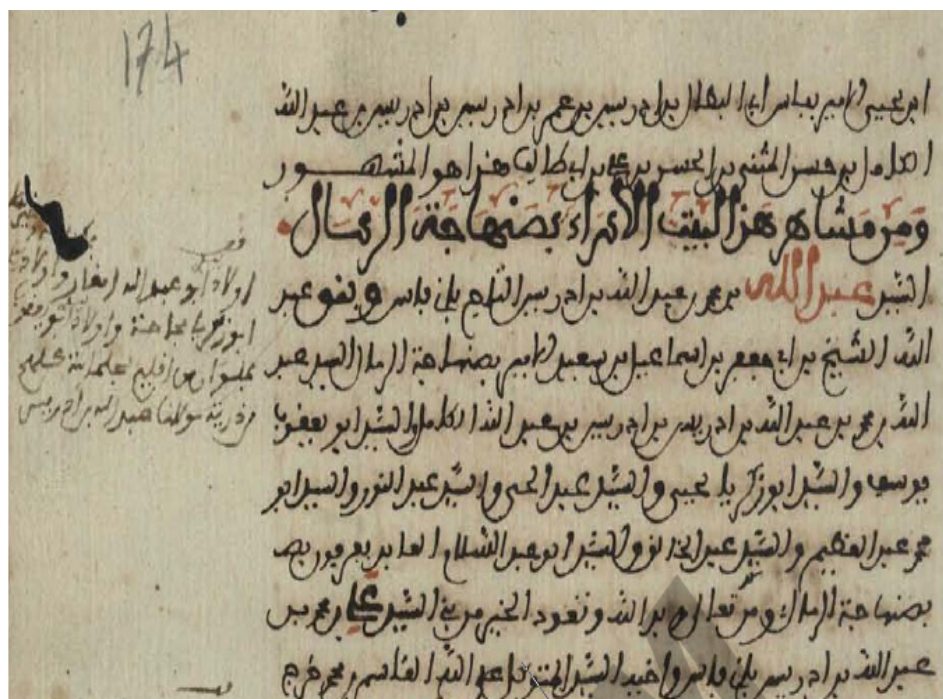 174
ابن يحيى الامير بفاس ابن ابراهيم بن ادريس بن عمر بن ادريس بن ادريس بن عبد الله
الكامل بن حسن المثنى بن الحسن بن علي بن ابي طالب هذا هو المشهور
ومن مشاهر هذا البيت الأمراء بصنهاجة الرمال
السيد عبد الله بن محمد بن عبد الله بن ادريس التاج باني فاس وبنو عبد
الله الشيخ بن ابي جعفر بن اسماعيل بن سعيد الامير بصنهاجة الرمال السيد عبد
الله بن محمد بن عبد الله بن ادريس بن ادريس بن عبد الله الكامل والسيد ابو يعقوب
يوسف والسيد ابو زكرياء يحيى والسيد عبد الحي والسيد عبد النور والسيد ابو
محمد عبد العظيم والسيد عبد الخالق والسيد ابو عبد السلام العابد
بصنهاجة الرمال ومن تعالى بن عبد الله ونعود الخبر من بني السيد علي بن محمد بن
عبد الله بن ادريس باني فاس واخيه السيد عبد الله القاسم بن محمد خرج
قف
اولاد ابو عبد الله امغار واولاد
ابو زكرياء بحاحة واولاد ابو يعقوب
من اقليم
من ذرية مولانا عبد الله بن ادريس